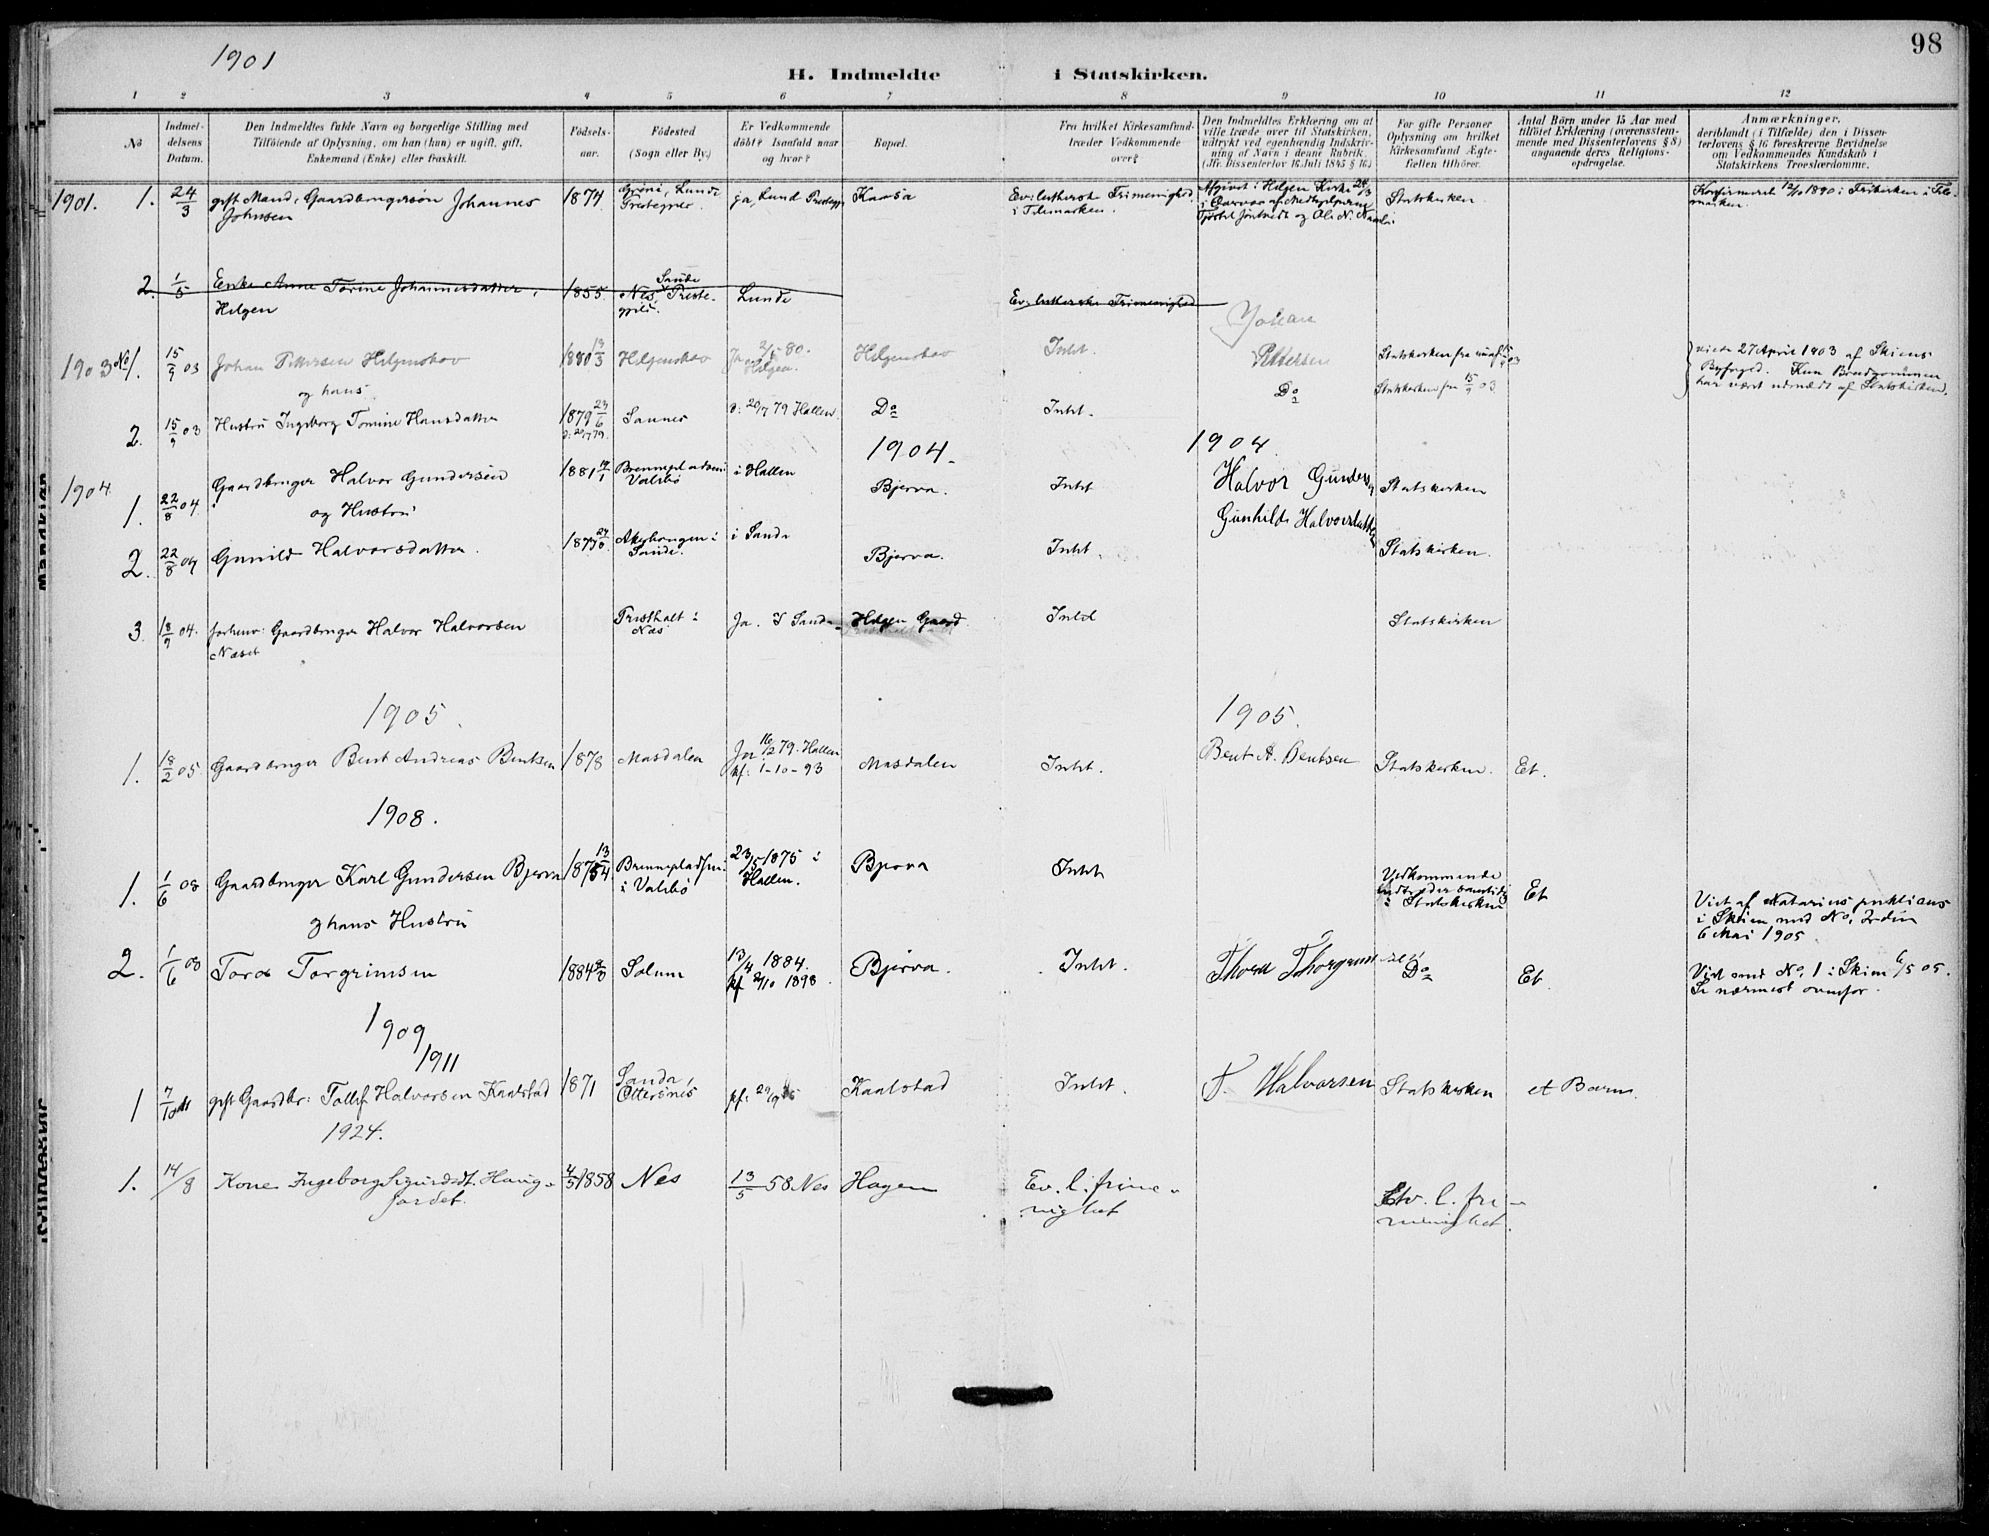 98
1901
H. Indmeldte i Statskirken.
1 2 3 4 5 6 7 8 9 10 11 12
No
Indmel-
delsens
Datum.
Den Indmeldtes fulde Navn og borgerlige Stilling med
Tilföiende af Oplysning, om han (hun) er ugift, gift,
Enkemand (Enke) eller fraskilt.
Födsels-
aar.
Födested
(Sogn eller By.)
Er Vedkommende
döbt? Isaafald naar
og hvor?
Bopæl.
Fra hvilket Kirkesamfund
træder Vedkommende
over?
Den Indmeldtes Erklæring om at
ville træde over til Statskirken,
udtrykt ved egenhændig Indskriv-
ning af Navn i denne Rubrik.
(Jfr. Dissenterlov 16. Juli 1845 § 16.)
For gifte Personer
Oplysning om hvilket
Kirkesamfund Ægte-
fællen tilhörer.
Antal Börn under 15 Aar med
tilföiet Erklæring (overensstem-
mende med Dissenterlovens § 8)
angaaende deres Religions-
opdragelse.
Anmærkninger,
deriblandt (i Tilfælde) den i Dissen-
terlovens § 16 foreskrevne Bevidnelse
om Vedkommendes Kundskab i
Statskirkens Troeslærdomme.
1901. 1. 24/3 gift Mand, Gaardbrugersön Johannes 1874 Lunde ja, Lund Kaasa Ev: luthersk Frimenighed Afgivet i Helgen Kirke 24/3 Statskirken Konfirmeret 12/10 1890 i Frikirken i Tele-
Johnsen Præstegjeld i Telemarken. marken.
2. 1/5 Enke Anne Torine Johannesdatter, 1855. Nes, Sande Præste- Lunde Ev: lutherske Frimenighed
Helgen gjeld.
1903 No 1. 15/9 03 Johan Pettersen Helgenshov 1880 13/3 Helgenshov Ja 2/5 80. Helgenshov Intet. Johan Statskirken fra 15/9 03 viede 27 April 1903 af Skiens
og hans Helgen. Pettersen Byfoged. Kun Brudgommen
har vært udmeldt af Statskirken.
2. 15/9 03 Hustru Ingeborg Tomine Hansdatter 1879 23/6 Sannes d: 20/7 79 Hollen Do Intet. Do Statskirken fra 15/9 03
1904. 1904
1904 1. 22/8 04. Gaardbruger Halvor Gundersen 1881 i Hollen Bjerva. Intet Halvor Gunders Statskirken
og Hustru Valebö
2. 22/8 04 Gunild Halvorsdatter. i Sande Bjerva. Intet. Gunhild Halvorsdatter Statskirken.
3. 18/9 04. forhenv: Gaardbruger Halvor Halvorsen i Ja. I Sande Helgen Gaard Intet Statskirken
Næset Næs
1905. 1905.
1. 18/2 05 Gaardbruger Bent Andreas Bentsen 1878 Masdalen Ja. 16/2 79. Hollen Masdalen Intet. Bent A. Bentsen Statskirken. Et.
kf: 1-10-93
1908.
1. 1/6 08 Gaardbruger Karl Gundersen Bjerva 1875 13/4 Brennepladsen 23/5 1875 i Bjerva Intet Vedkommende Et Viet af Notarius publicus
i Valebö Hollen. indtræder samtidig i Skien med No. 2 den
og hans Hustru i Statskirken 6 Mai 1905.
2. 1/6 08 Tora Torgrimsen 1884 Solum 13/4 1884. Bjerva. Intet. Thora Thorgrimsen Do Et Viet med No. 1 i Skien 6/5 05.
kf 2/10 1898 Se nærmest ovenfor.
1909
1911
1 7/10 gift Gaardbr: Tollef Halvorsen Kaalstad 1871 Sanda, Kaalstad Intet. T. Halvorsen Statskirken et Barn.
Ottersnes
1924.
1. 14/8 Kone Ingeborg Sigurdsdt. Haug- 4/5 1858 Nes 13/5 58 Nes Hagen Ev. l. frime- Ev. l. fri-
jordet. nighet menighet.